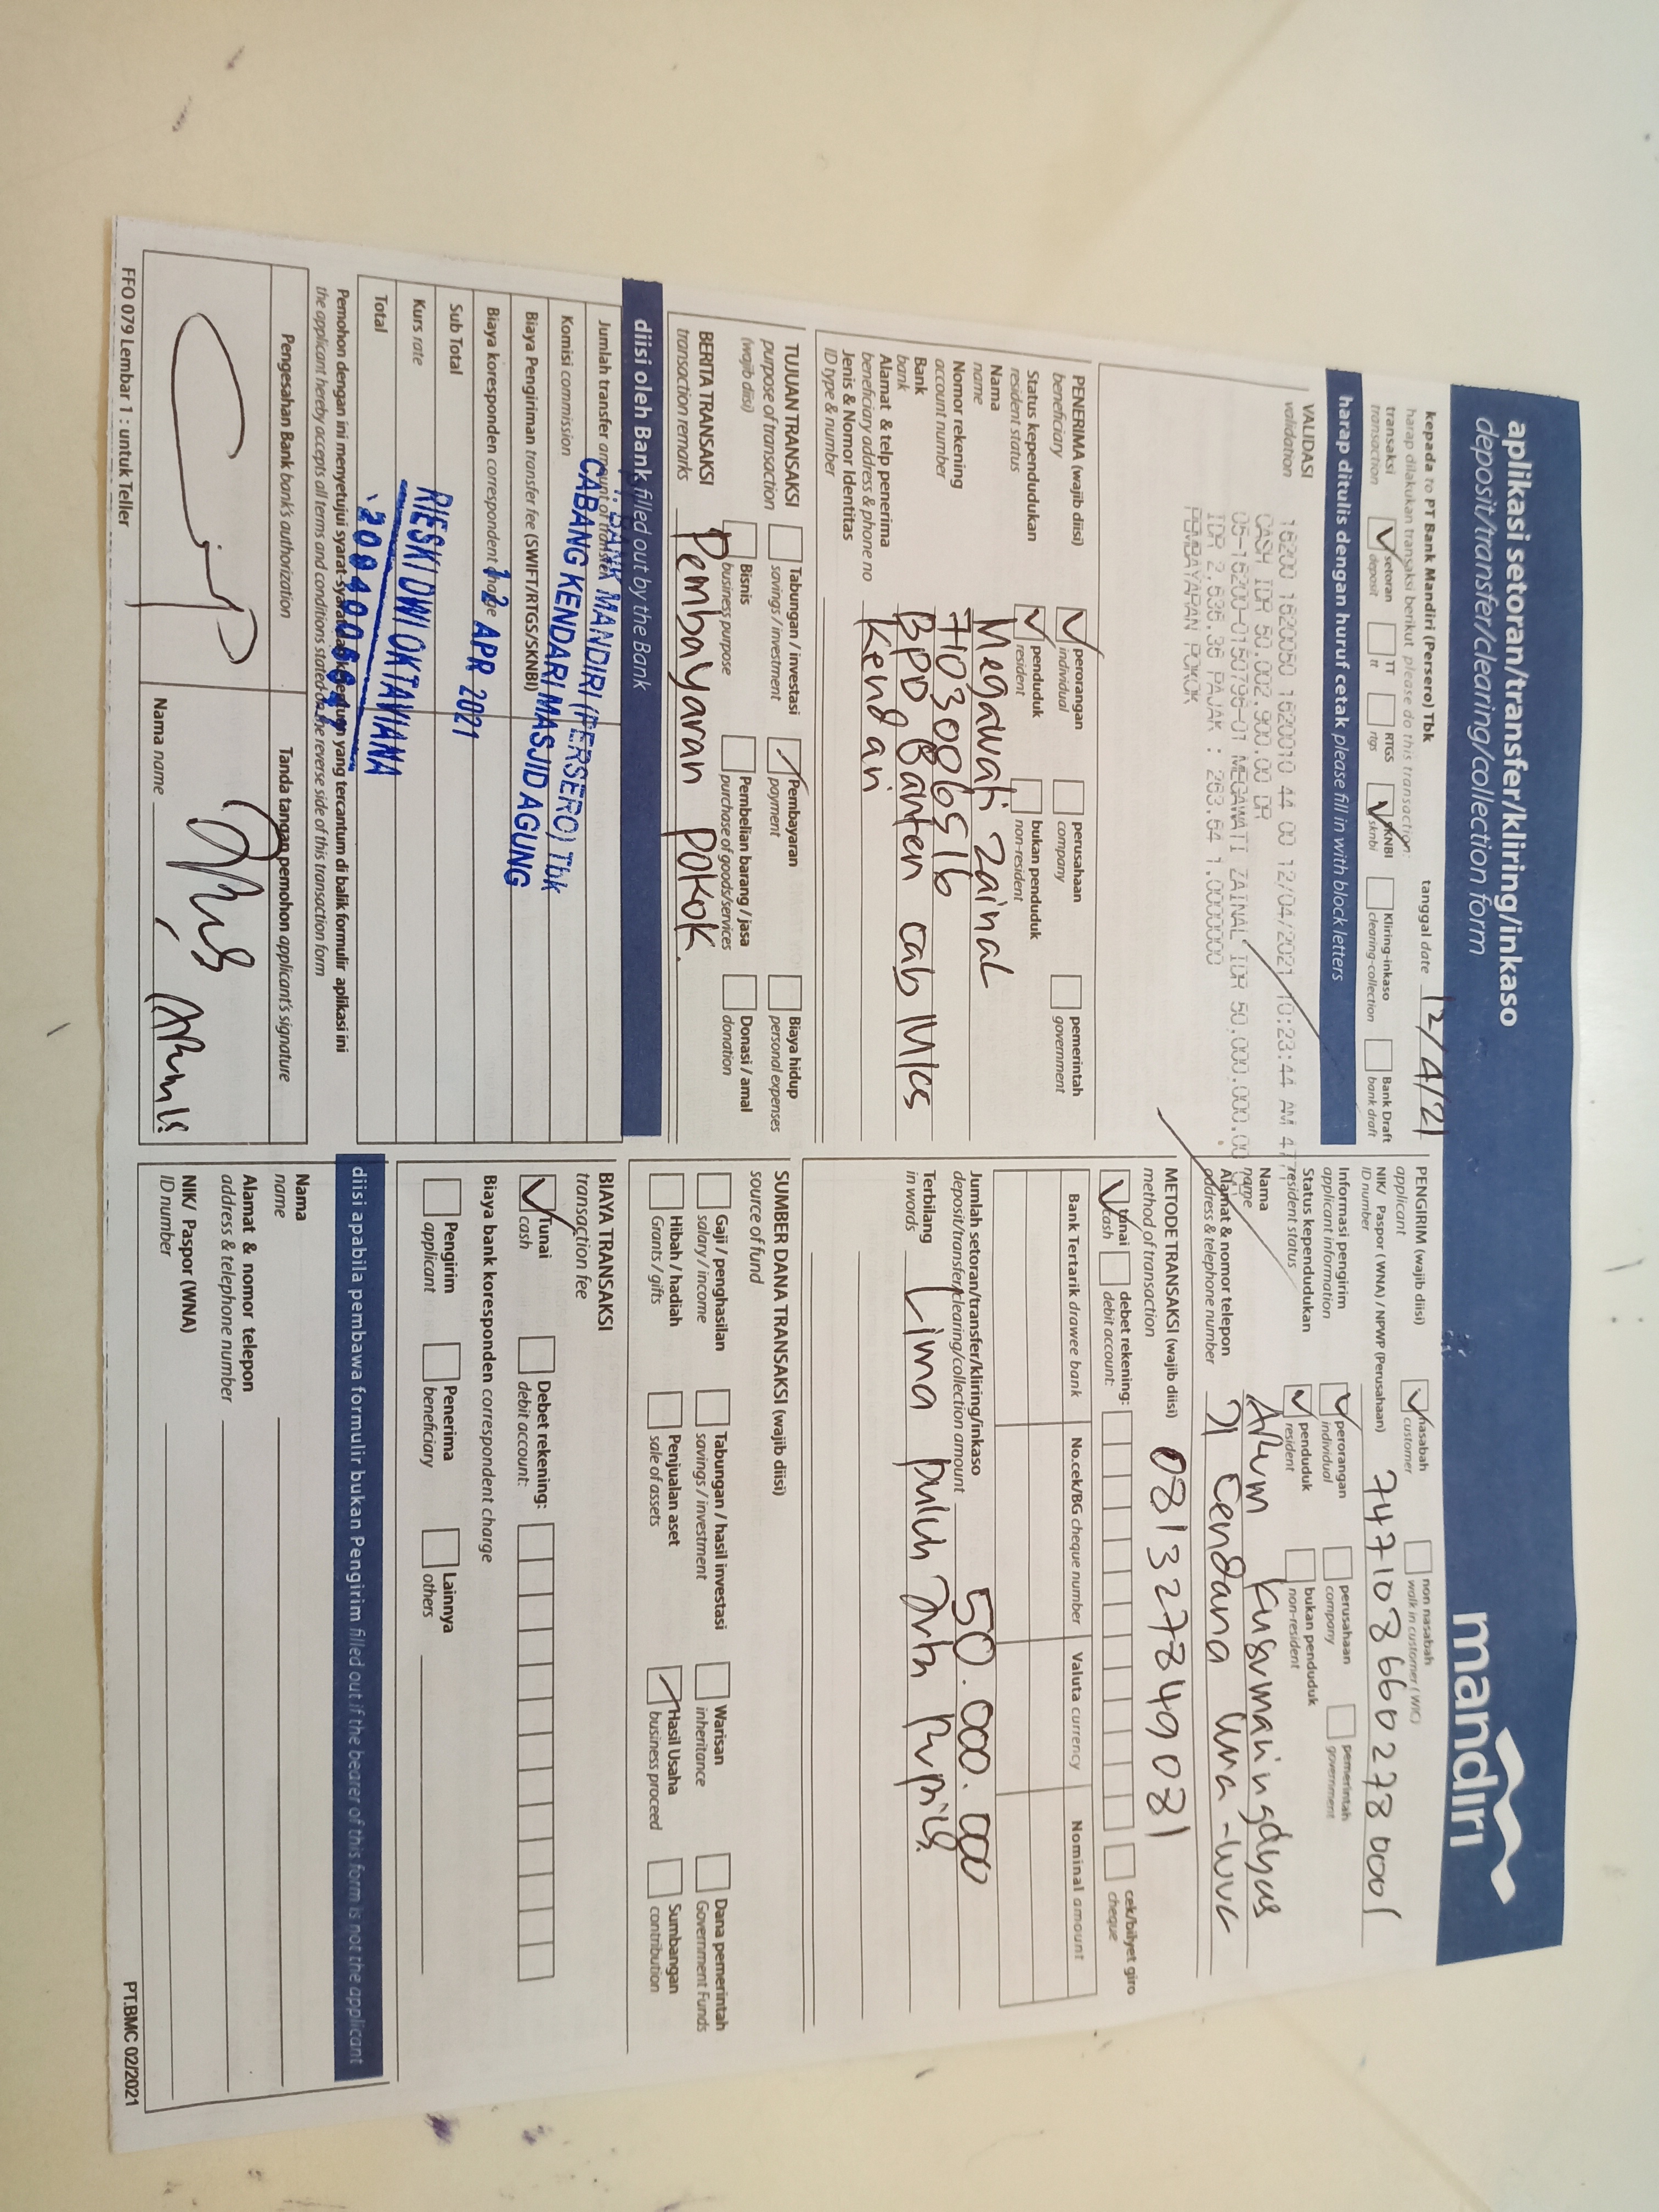 aplikasi setoran/transfer/kliring/inkaso
deposit/transfer/clearing/collection form
mandırı
kepada to PT Bank Mandiri (Persero) Tbk
tanggal date 12/4/21
harap dilakukan transaksi berikut please do this transaction:
transaksi
transaction
setoran
deposit
TT
tt
RTGS
rtgs
SKNBI
sknbi
Kliring-inkaso
clearing-collection
Bank Draft
bank draft
harap ditulis dengan huruf cetak please fill in with block letters
VALIDASI
validation
16200 1620050 1620010 44 00 12/04/2021 10:23:44 AM
CASH IDR 50.002.900.00 DR
05-16200-0150796-01 MEGAWATI ZAINAL IDR 50.000.000.00
IDR 2.636.36 PAJAK : 263.64 1.0000000
PEMBAYARAN POKOK
PENERIMA (wajib diisi)
beneficiary
perorangan
individual
perusahaan
company
pemerintah
government
Status kependudukan
resident status
penduduk
resident
bukan penduduk
non-resident
Nama
name
Megawati Zainal
Nomor rekening
account number
7103006516
Bank
bank
BPD Banten cab Mks
Alamat & telp penerima
beneficiary address & phone no
Kendari
Jenis & Nomor Identitas
ID type & number
TUJUAN TRANSAKSI
purpose of transaction
(wajib diisi)
Tabungan / investasi
savings / investment
Pembayaran
payment
Biaya hidup
personal expenses
Bisnis
business purpose
Pembelian barang / jasa
purchase of goods/services
Donasi / amal
donation
BERITA TRANSAKSI
transaction remarks
Pembayaran pokok.
diisi oleh Bank filled out by the Bank
Jumlah transfer amount of transfer
BANK MANDIRI (PERSERO) Tbk
Komisi commission
CABANG KENDARI MASJID AGUNG
Biaya Pengiriman transfer fee (SWIFT/RTGS/SKNBI)
Biaya koresponden correspondent charge
12 APR 2021
Sub Total
Kurs rate
RIESKI DWI OKTAVIANA
Total
Pemohon dengan ini menyetujui syarat-syarat dan ketentuan yang tercantum di balik formulir aplikasi ini
the applicant hereby accepts all terms and conditions stated on the reverse side of this transaction form
Pengesahan Bank bank's authorization
Tanda tangan pemohon applicant's signature
Nama name
FFO 079 Lembar 1 : untuk Teller
PENGIRIM (wajib diisi)
applicant
nasabah
customer
non nasabah
walk in customer (WIC)
NIK/ Paspor (WNA) / NPWP (Perusahaan)
ID number
7471086602780001
Informasi pengirim
applicant information
perorangan
individual
perusahaan
company
pemerintah
government
Status kependudukan
resident status
penduduk
resident
bukan penduduk
non-resident
Nama
name
Arum Kusumaningdyas
Alamat & nomor telepon
address & telephone number
Jl Cendana
081327849081
METODE TRANSAKSI (wajib diisi)
method of transaction
tunai
cash
debet rekening:
debit account:
cek/bilyet giro
cheque
Bank Tertarik drawee bank
No.cek/BG cheque number
Valuta currency
Nominal amount
Jumlah setoran/transfer/kliring/inkaso
deposit/transfer/clearing/collection amount
50.000.000
Terbilang
in words
Lima puluh Juta Rupiah.
SUMBER DANA TRANSAKSI (wajib diisi)
source of fund
Gaji / penghasilan
salary / income
Tabungan / hasil investasi
savings / investment
Warisan
inheritance
Dana pemerintah
Government Funds
Hibah / hadiah
Grants / gifts
Penjualan aset
sale of assets
Hasil Usaha
business proceed
Sumbangan
contribution
BIAYA TRANSAKSI
transaction fee
Tunai
cash
Debet rekening:
debit account:
Biaya bank koresponden correspondent charge
Pengirim
applicant
Penerima
beneficiary
Lainnya
others
diisi apabila pembawa formulir bukan Pengirim filled out if the bearer of this form is not the applicant
Nama
name
Alamat & nomor telepon
address & telephone number
NIK/ Paspor (WNA)
ID number
PT.BMC 02/2021